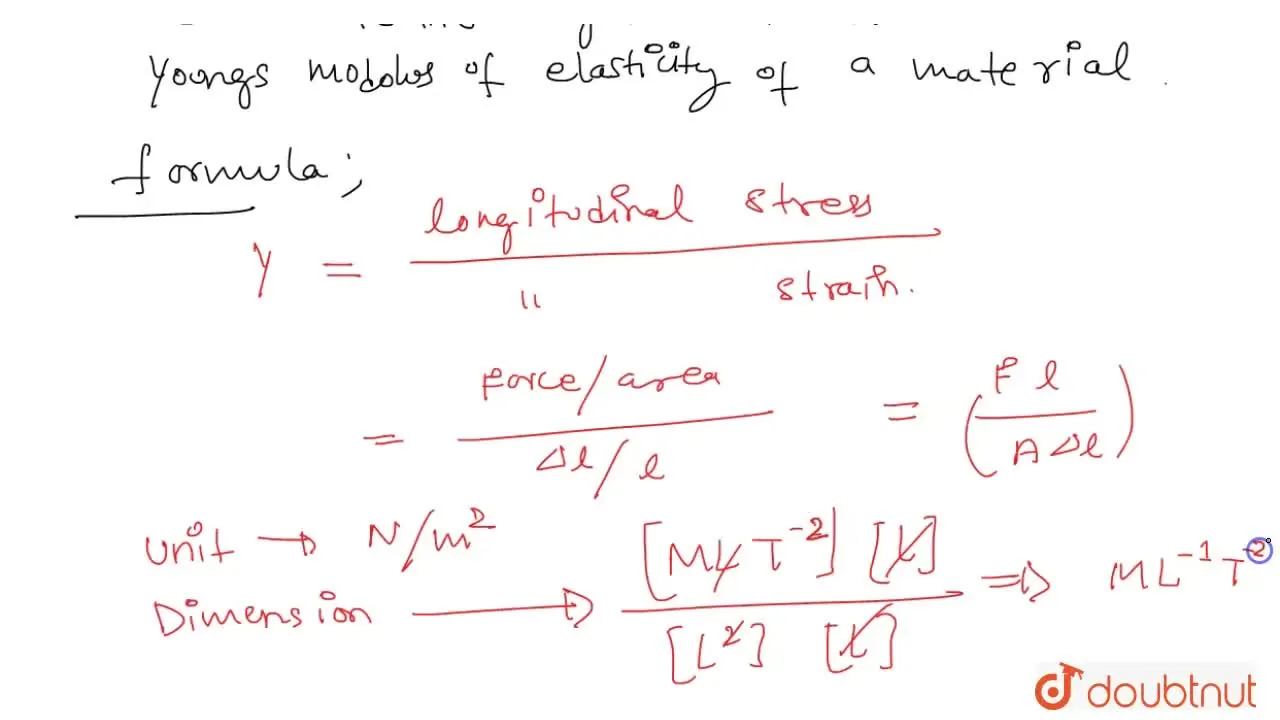 Youngs modulus of elasticity of a material.
formula;
Y = longitudinal stress / " strain.
= Force/area / Δl/l = (F l / A Δl)
Unit → N/m²
Dimension → [M L T⁻²] [L] / [L²] [L] ⇒ M L⁻¹ T⁻²
doubtnut